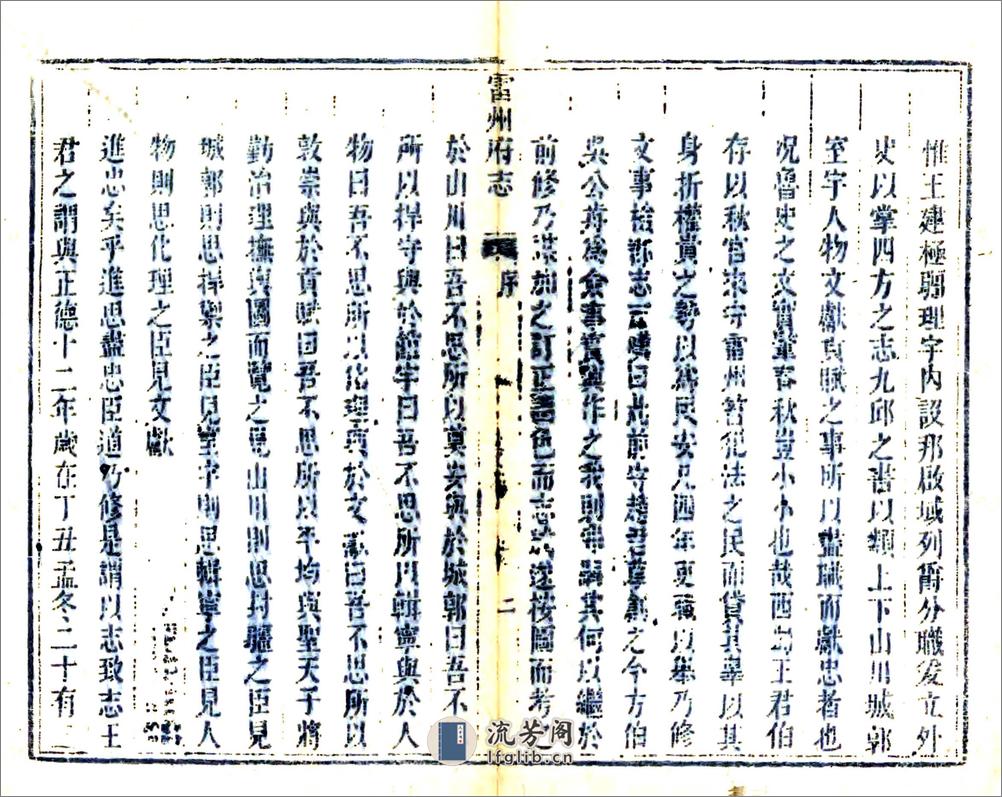 惟王建極疆理宇內設邦啟域列爵分職爰立外
史以掌四方之志九邱之書以類上下山川城郭
室宇人物文獻貢賦之事所以盡職而獻忠者也
况魯史之文實董春秋豈小小也哉西蜀王君伯
存以秋官來守雷州嘗犯法之民而貸其辜以其
身折權貴之勢以爲民安凡四年更職以舉乃修
文事檢郡志云嘆曰此前守趙君草創之今方伯
吳公蒋爲僉事實與作之我則其何以繼於
前修乃謀加之訂正色而志成遂按圖而考之
於山川曰吾不思所以奠安與於城郭曰吾不
雷州府志
序
二
所以捍守與於室宇曰吾不思所以輯寧與於人
物曰吾不思所以化理與於文獻曰吾不思所以
敦崇與於貢賦曰吾不思所以平均與聖天子將
勤治理撫輿圖而覽之見山川則思封疆之臣見
城郭則思捍禦之臣見室宇則思輯寧之臣見人
物則思化理之臣見文獻
進忠矣乎進思盡忠臣道乃修是謂以志致志王
君之謂與正德十二年歲在丁丑孟冬二十有二
流芳阁
lfglib.cn